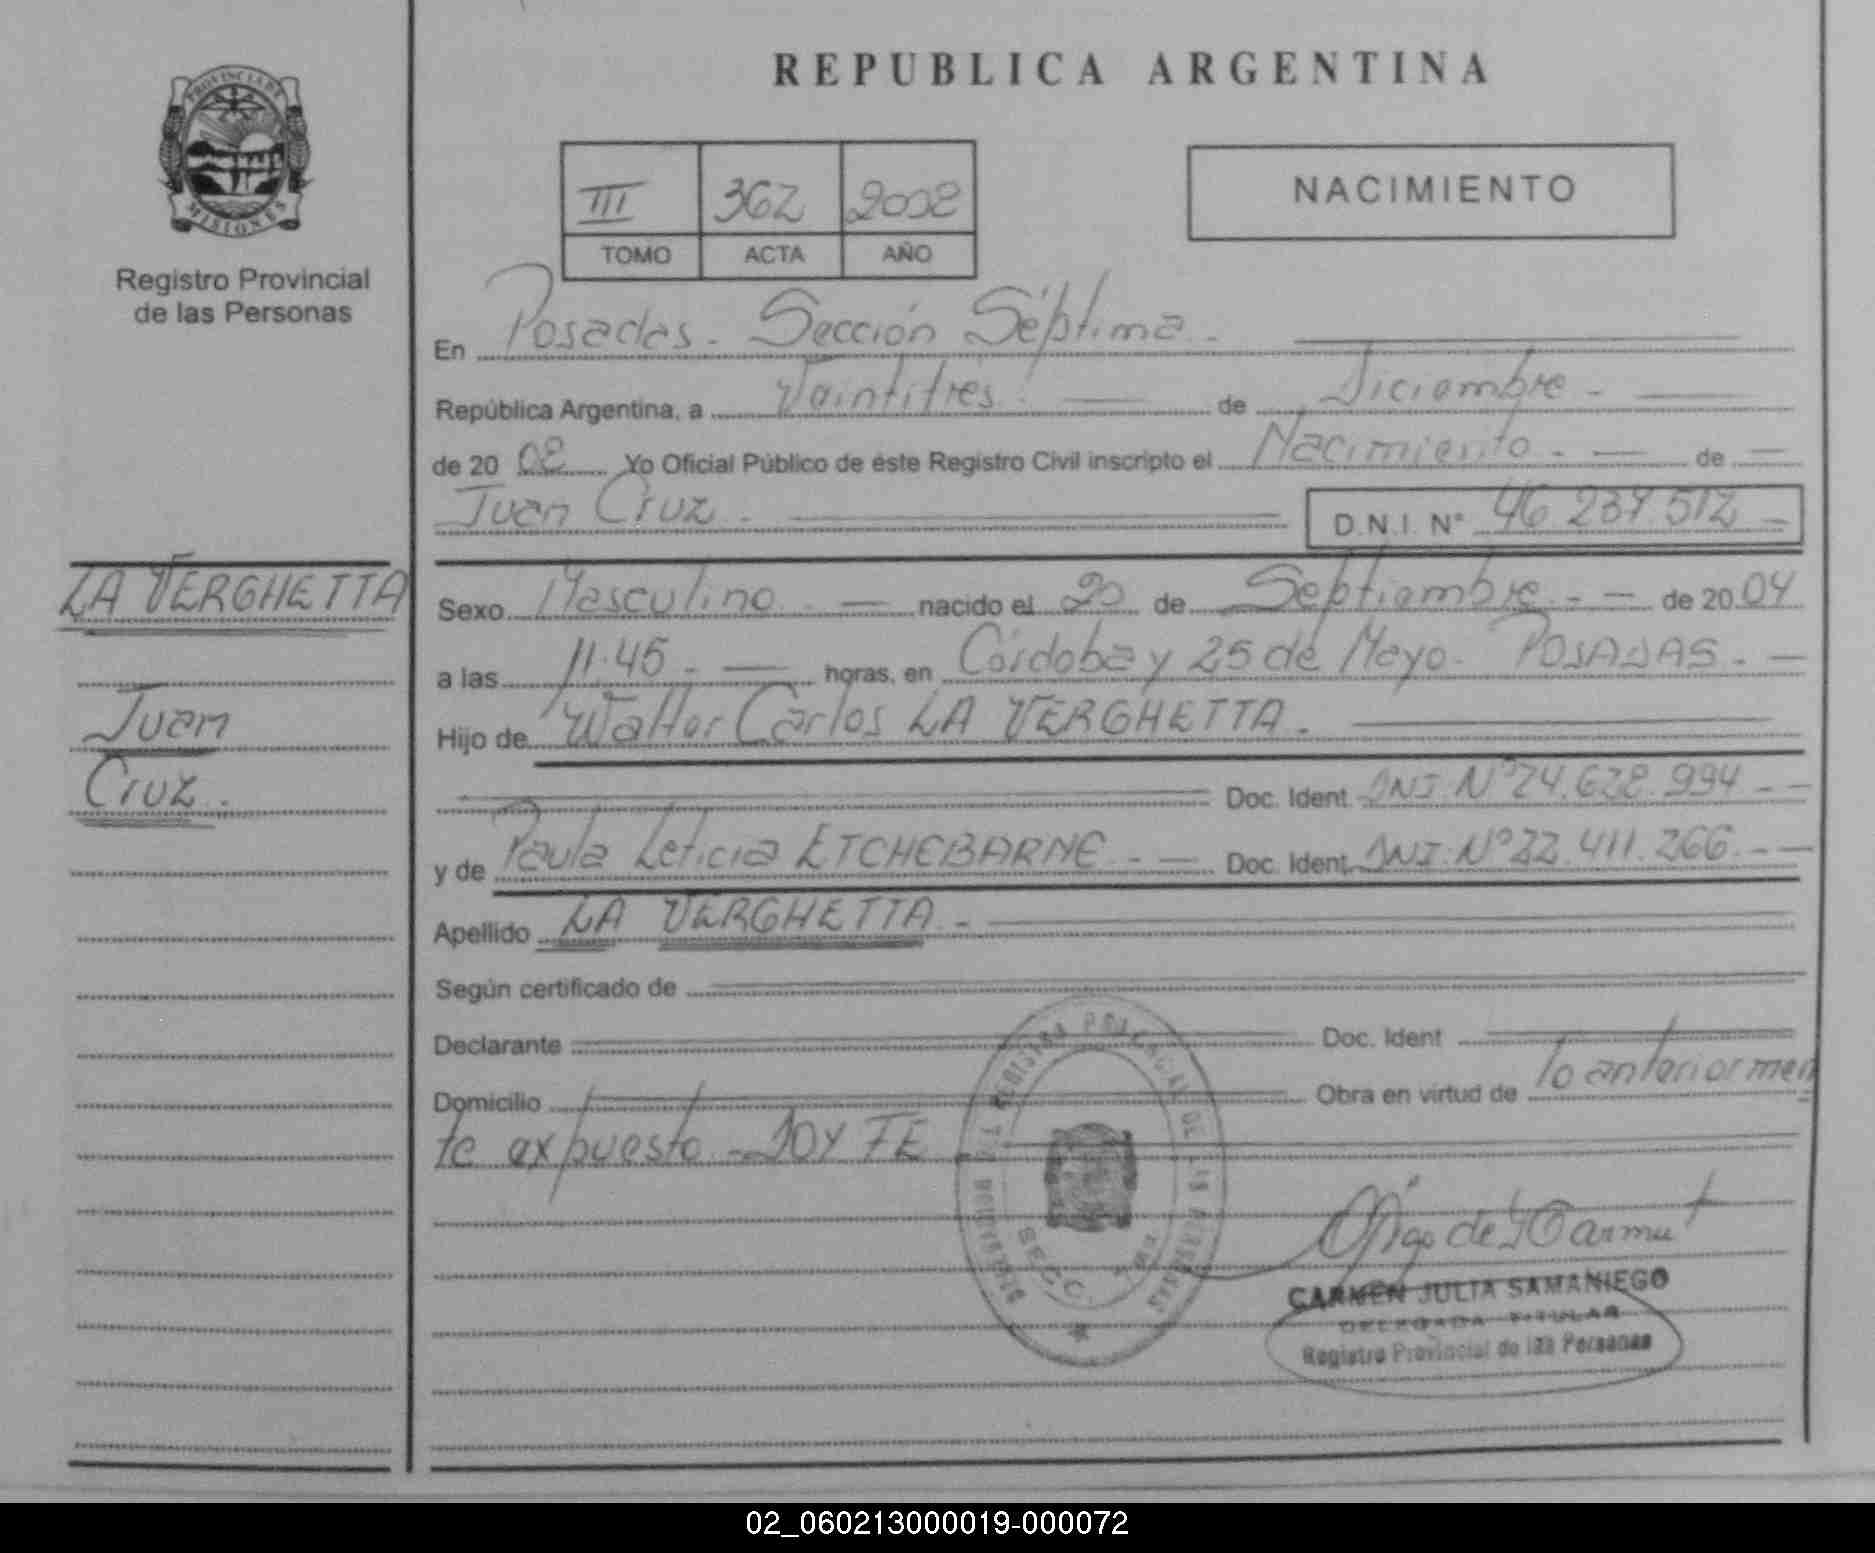 REPUBLICA ARGENTINA
PROVINCIA DE
MISIONES
Registro Provincial
de las Personas
III 362 2008
TOMO ACTA AÑO
NACIMIENTO
En Posadas. Sección Séptima.
República Argentina, a Veintitres. de Diciembre.
de 20 08 Yo Oficial Público de éste Registro Civil inscripto el Nacimiento. de
Juan Cruz. D.N.I. N° 46 237 512
LA VERGHETTA
Juan
Cruz.
Sexo Masculino. nacido el 20 de Septiembre. de 20 04
a las 11.45. horas, en Córdoba y 25 de Mayo. POSADAS.
Hijo de Walter Carlos LA VERGHETTA.
Doc. Ident. DNI. N° 24.628.994
y de Paula Leticia ETCHEBARNE. Doc. Ident. DNI. N° 22.411.266.
Apellido LA VERGHETTA.
Según certificado de
Declarante Doc. Ident
Domicilio Obra en virtud de lo anteriormen
te expuesto. DOY FE
REGISTRO PROVINCIAL DE LAS PERSONAS
SECC. 7ma
CARMEN JULIA SAMANIEGO
DELEGADA TITULAR
Registro Provincial de las Personas
02_060213000019-000072